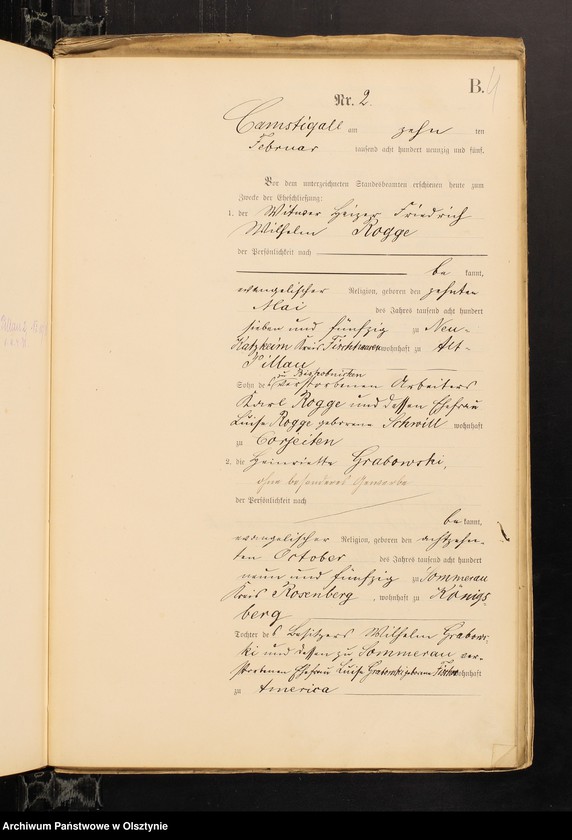 B. 4
Nr. 2.
Camstigall am zehn ten
Februar tausend acht hundert neunzig und fünf.
Vor dem unterzeichneten Standesbeamten erschienen heute zum
Zwecke der Eheschließung:
1. der Witwer Heizer Friedrich
Wilhelm Rogge
der Persönlichkeit nach
be kannt,
evangelischer Religion, geboren den zehnten
Mai des Jahres tausend acht hundert
sieben und fünfzig zu Neu-
Katzkeim Kreis Fischhausen wohnhaft zu Alt-
Pillau
Sohn des zu verstorbenen Arbeiters
Karl Rogge und dessen Ehefrau
Luise Rogge geborene Schwill wohnhaft
zu Corjeiten
2. die Henriette Grabowski,
ohne besonderes Gewerbe
der Persönlichkeit nach
be kannt,
evangelischer Religion, geboren den achtzehn-
ten October des Jahres tausend acht hundert
neun und fünfzig zu Sommerau
Kreis Rosenberg, wohnhaft zu Königs-
berg
Tochter des Besitzers Wilhelm Grabows-
ki und dessen zu Sommerau ver-
storbenen Ehefrau Luise Grabowski geborene Fischer wohnhaft
zu America
Archiwum Państwowe w Olsztynie